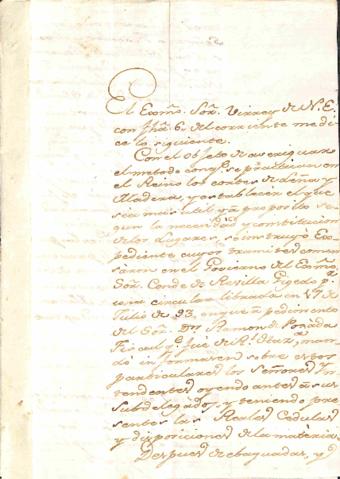 El Exmo. Sor. Virrey de N.E.
con fha. 6 del corriente me di-
ce lo siguiente.
Con el objeto de averiguar
el metodo conq. se practican en
el Reino los cortes de Leña y
Madera, y establecer el que
sea mas util y a proposito se-
gun la necesidad y constitucion
de los lugares se instruyó Ex-
pediente cuyos tramites comen-
zaron en el Govierno del Exmo.
Sor. Conde de Revilla Gigedo p.r
una circular librada en 17 de
Julio de 93, en que a pedimento
del Sor. Dn. Ramon de Posada
Fiscal q. fue de Rl. Hazda. man-
dó informasen sobre estos
particulares los Señores In-
tendentes oyendo antes a sus
Subdelegados, y teniendo pre-
sentes las Reales Cedulas
y disposiciones de la materia.
Despues de ebaquadas, y